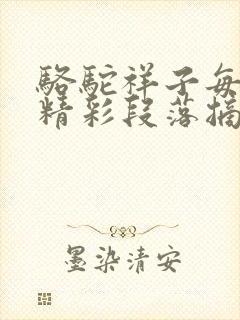 駱駝祥子每
精彩段落摘
墨染清安